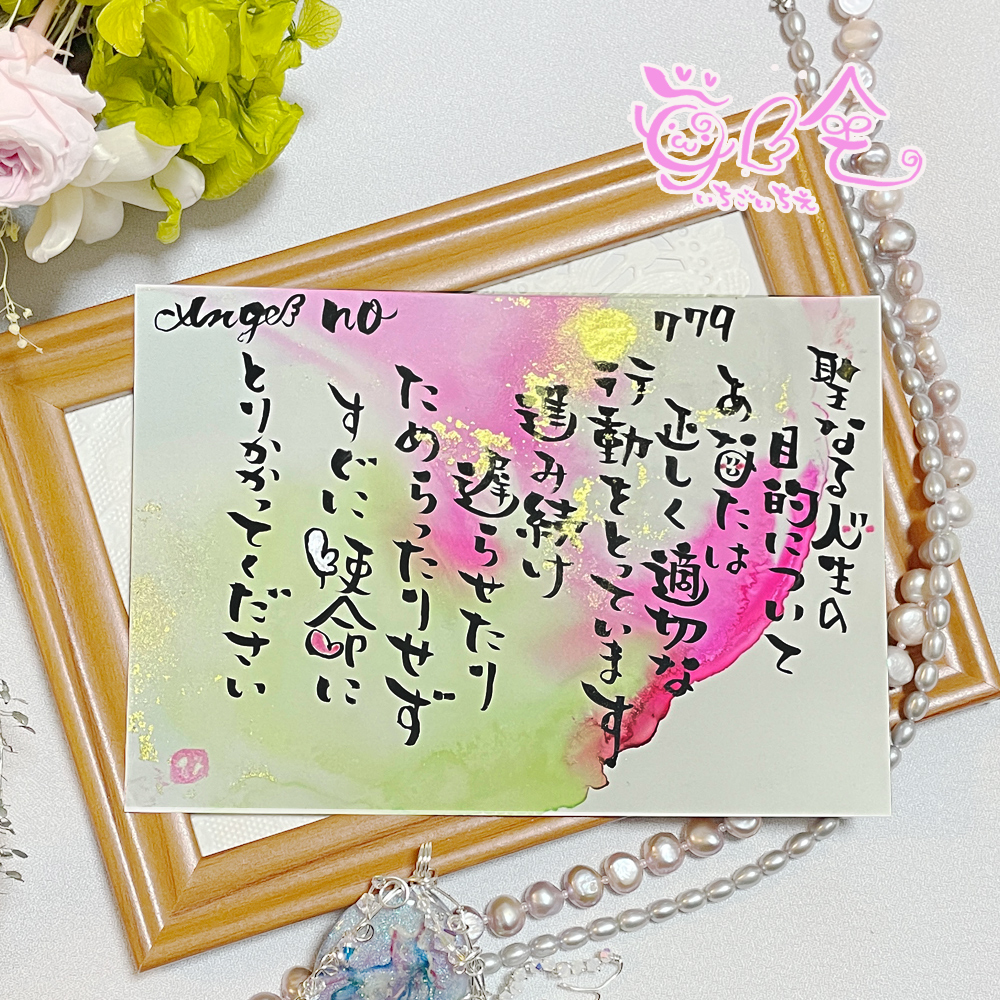 Angel no 779
聖なる人生の
目的について
あなたは
正しく適切な
行動をとっています
進み続け
遅らせたり
ためらったりせず
すぐに使命に
とりかかってください
いちごいちえ